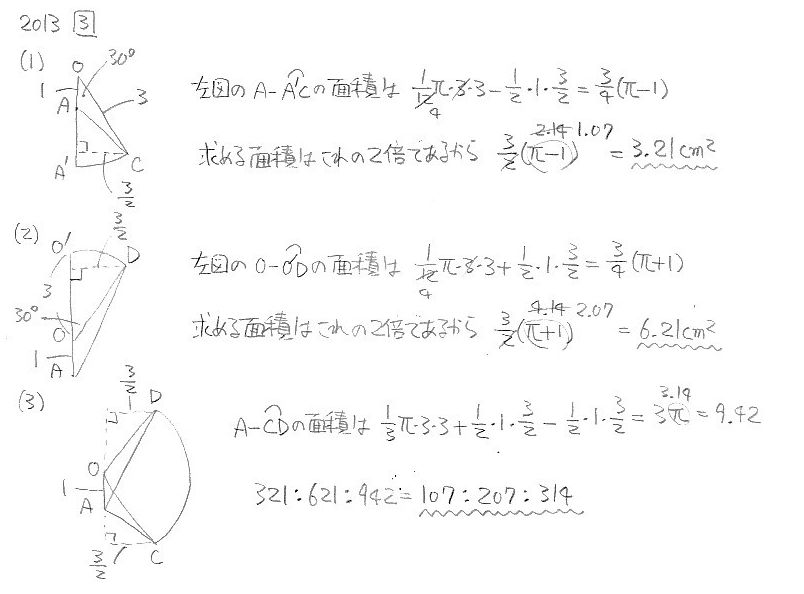 2013 3
(1)
O 30°
1 3
A
A' C
3/2
左図の A-A'Cの面積は 1/12 π·3·3 - 1/2·1·3/2 = 3/4(π-1)
4
求める面積はこれの2倍であるから 3/2(π-1) = 3.21cm²
2.14 1.07
(2)
O' 3/2 D
3
30°
O
1 A
左図の O-O'Dの面積は 1/12 π·3·3 + 1/2·1·3/2 = 3/4(π+1)
4
求める面積はこれの2倍であるから 3/2(π+1) = 6.21cm²
4.14 2.07
(3)
3/2 D
O
1
A
3/2 C
A-CDの面積は 1/3 π·3·3 + 1/2·1·3/2 - 1/2·1·3/2 = 3π = 9.42
3.14
321:621:942=107:207:314